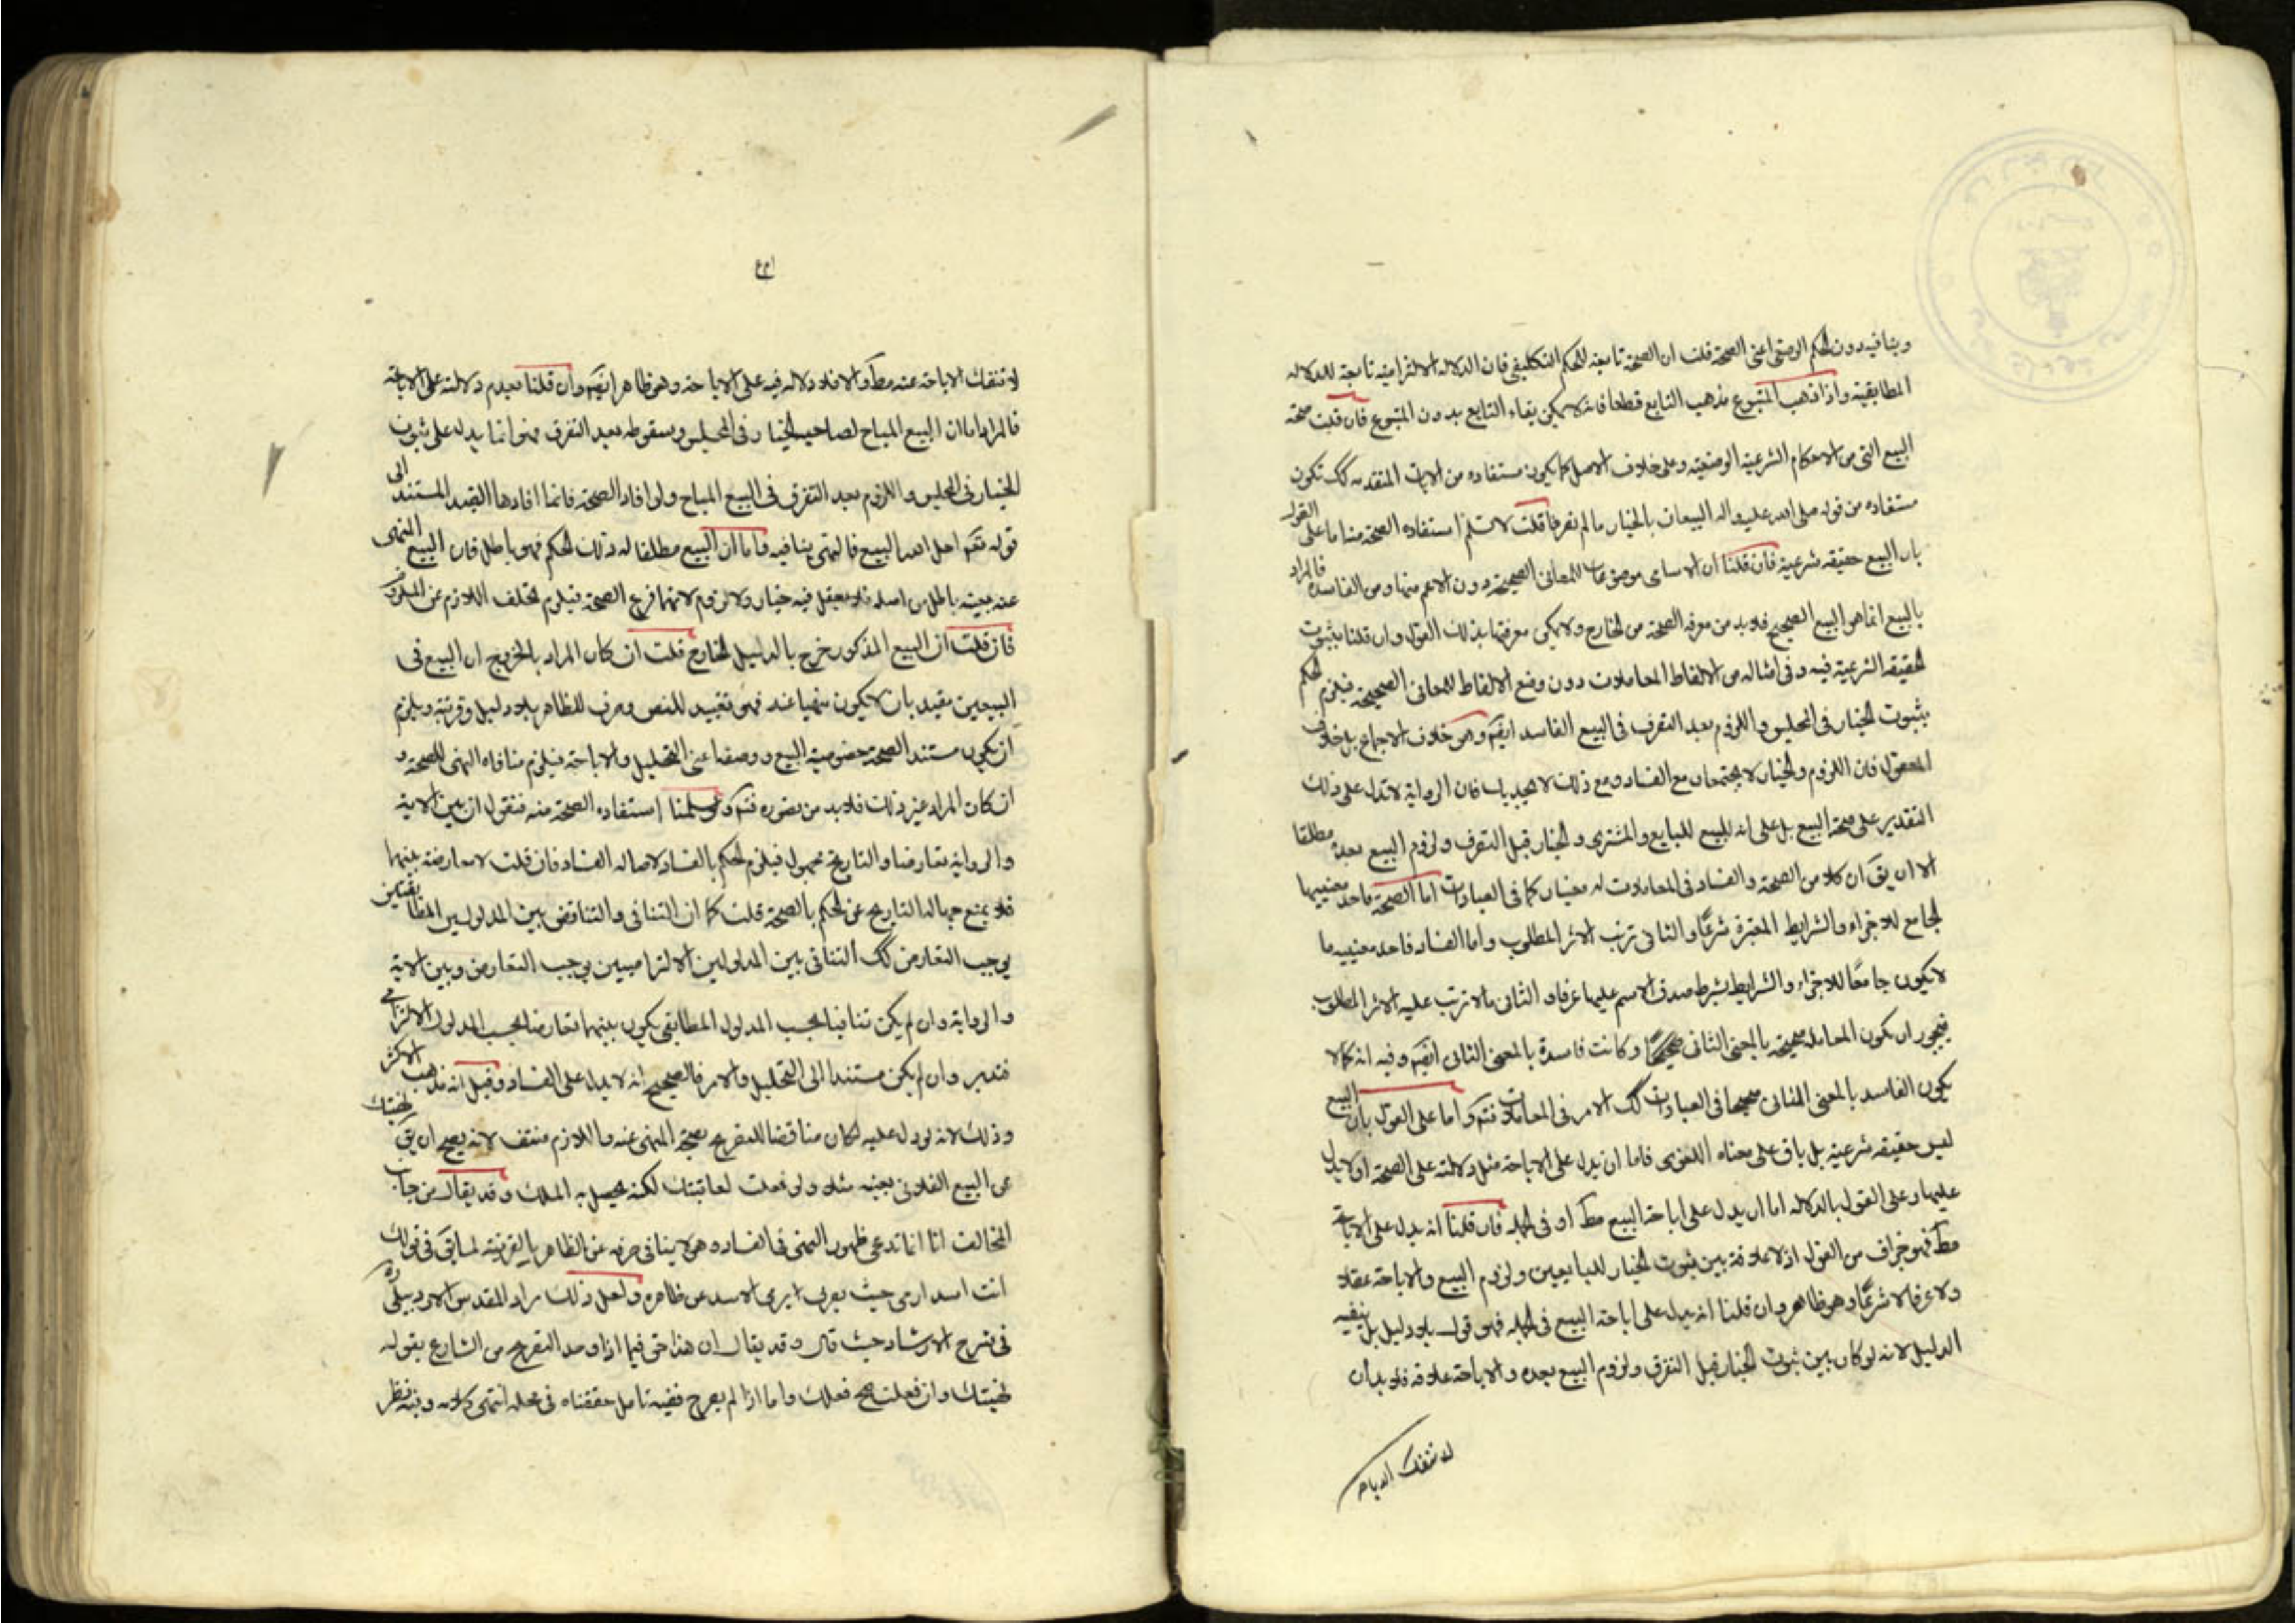 وينافيه دون الحكم الوضعي اعني الصحة قلت ان الصحة تابعة للحكم التكليفي فان الدلالة الالتزامية تابعة للدلالة
المطابقية واذا ذهب المتبوع يذهب التابع قطعا فانه لا يمكن بقاء التابع بدون المتبوع فان قلت صحة
البيع التي من الاحكام الشرعية الوضعية وعلى خلاف الاصل كما يكون مستفاده من الايات المتقدمه كك تكون
مستفاده من قوله صلى الله عليه واله البيعان بالخيار ما لم يفترقا قلت لا نسلم استفاده الصحة منه اما على القول
بان البيع حقيقه شرعية فان قلنا ان الاسامى موضوعات للمعانى الصحيحة دون الاعم منها ومن الفاسده فالمراد
بالبيع انما هو البيع الصحيح فلا بد من معرفه الصحة من الخارج ولا يمكن معرفتها بذلك القول وان قلنا بثبوت
الحقيقه الشرعية فيه وفى امثاله من الالفاظ المعاملات دون وضع الالفاظ للمعانى الصحيحة فيلزم الحكم
بثبوت الخيار فى المجلس واللزوم بعد التفرق فى البيع الفاسد ايضم وهو خلاف الاجماع بل خلاف
المعقول فان اللزوم والخيار لا يجتمعان مع الفساد ومع ذلك لا يجديك فان الرواية لا تدل على ذلك
التقدير على صحة البيع بل على انه للبيع للبايع والمشترى والخيار قبل التفرق ولزوم البيع بعده مطلقا
الا ان يق ان كلا من الصحة والفساد فى المعاملات له معنيان كما فى العبادات اما الصحة فاحد معنييها
الجامع للاجزاء والشرايط المعتبرة شرعًا والثانى ترتب الاثر المطلوب واما الفساد فاحد معنييه ما
لا يكون جامعًا للاجزاء والشرايط بشرط صدق الاسم عليها عرفا والثانى ما لا ترتب عليه الاثر المطلوب
فيجوز ان يكون المعاملة صحيحة بالمعنى الثانى وكانت فاسدة بالمعنى الثانى ايضم وفيه انه كما لا
يكون الفاسد بالمعنى الثانى صحيحا فى العبادات كك الامر فى المعاملات فتم واما على القول بان البيع
ليس حقيقه شرعية بل باق على معناه اللغوى فاما ان يدل على الاباحة مثل دلالته على الصحة او لا يدل
عليها وعلى القول بالدلاله اما ان يدل على اباحة البيع مط او فى الجمله فان قلنا انه يدل على الاباحة
مط فهو جزاف من القول اذ لا علاقة بين ثبوت الخيار للبايعين ولزوم البيع والاباحة عقلا
ولا عرفا لا شرعًا وهو ظاهر وان قلنا انه يدل على اباحة البيع فى الجمله فهو قول بلا دليل بل ينفيه
الدليل لانه لو كان بين ثبوت الخيار قبل التفرق ولزوم البيع بعده والاباحة علاقة فلا بد ان
لا تنفك الاباحة
لا تنفك الاباحة عنه مط والا فلا دلاله فيه على الاباحة وهو ظاهر ايضم وان قلنا بعدم دلالته على الاباحة
فالمراد اما ان البيع المباح لصاحبه الخيار فى المجلس وسقوطه بعد التفرق فهو انما يدل على ثبوت
الخيار فى المجلس واللزوم بعد التفرق فى البيع المباح ولو افاد الصحة فانما افادها القيد المستند الى
قوله تعم احل الله البيع فالنهى ينافيه واما ان البيع مطلقا له ذلك الحكم فهو باطل فان البيع المنهى
عنه بعينه باطل من اصله فلا يعقل فيه خيار ولا لزوم لانهما فرع الصحة فيلزم تخلف اللازم عن الملزوم
فان قلت ان البيع المذكور خرج بالدليل الخارج قلت ان كان المراد بالخروج ان البيع فى
البيعين مقيد بان لا يكون منهيا عنه فهو تقييد للنص وصرف للظاهر بلا دليل وقرينة ويلزم
ان يكون مستند الصحة خصوصية البيع ووصفه اعنى التحليل والاباحة فيلزم منافاه النهى للصحة و
ان كان المراد غير ذلك فلا بد من تصوره فتم ولو سلمنا استفاده الصحة منه فنقول ان بين الاية
والرواية تعارضا والتاريخ مجهول فيلزم الحكم بالفساد لاصاله الفساد فان قلت لا معارضة بينهما
فلا يمنع جهالة التاريخ عن الحكم بالصحة قلت كما ان التنافى والتناقض بين المدلولين المطابقيين
يوجب التعارض كك التنافى بين المدلولين الالتزاميين يوجب التعارض وبين الاية
والرواية وان لم يكن تنافيا بحسب المدلول المطابقى يكون بينهما تعارضا بحسب المدلول الالتزامى
فتدبر وان لم يكن مستندا الى التحليل والامر فالصحيح انه لا يدل على الفساد وقيل انه مذهب الاكثر
وذلك لانه لو دل عليه لكان مناقضا للتصريح بصحة المنهى عنه واللازم منتف لانه يصح ان يق نهيتك
عن البيع الفلانى بعينه مثلا ولو فعلت لعاقبتك لكنه يحصل به الملك وقد يقال من جانب
المخالف انا انما ندعى ظهور النهى فى الفساد وهو لا ينافى صرفه عن الظاهر بالقرينة لما بق فى قولك
انت اسدا رمى حيث يعرف ايرى الاسد عن ظاهره ولعل ذلك مراد المقدس الاردبيلى ره
فى شرح الارشاد حيث قال وقد يقال ان هذا حق فيما اذا وجد التصريح من الشارع بقوله
نهيتك وان فعلت صح فعلك واما اذا لم يصرح ففيه تامل حققناه فى محله انتهى كلامه وفيه نظر